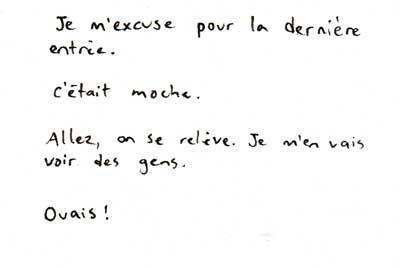 Je m'excuse pour la dernière
entrée.
C'était moche.
Allez, on se relève. Je m'en vais
voir des gens.
Ouais!